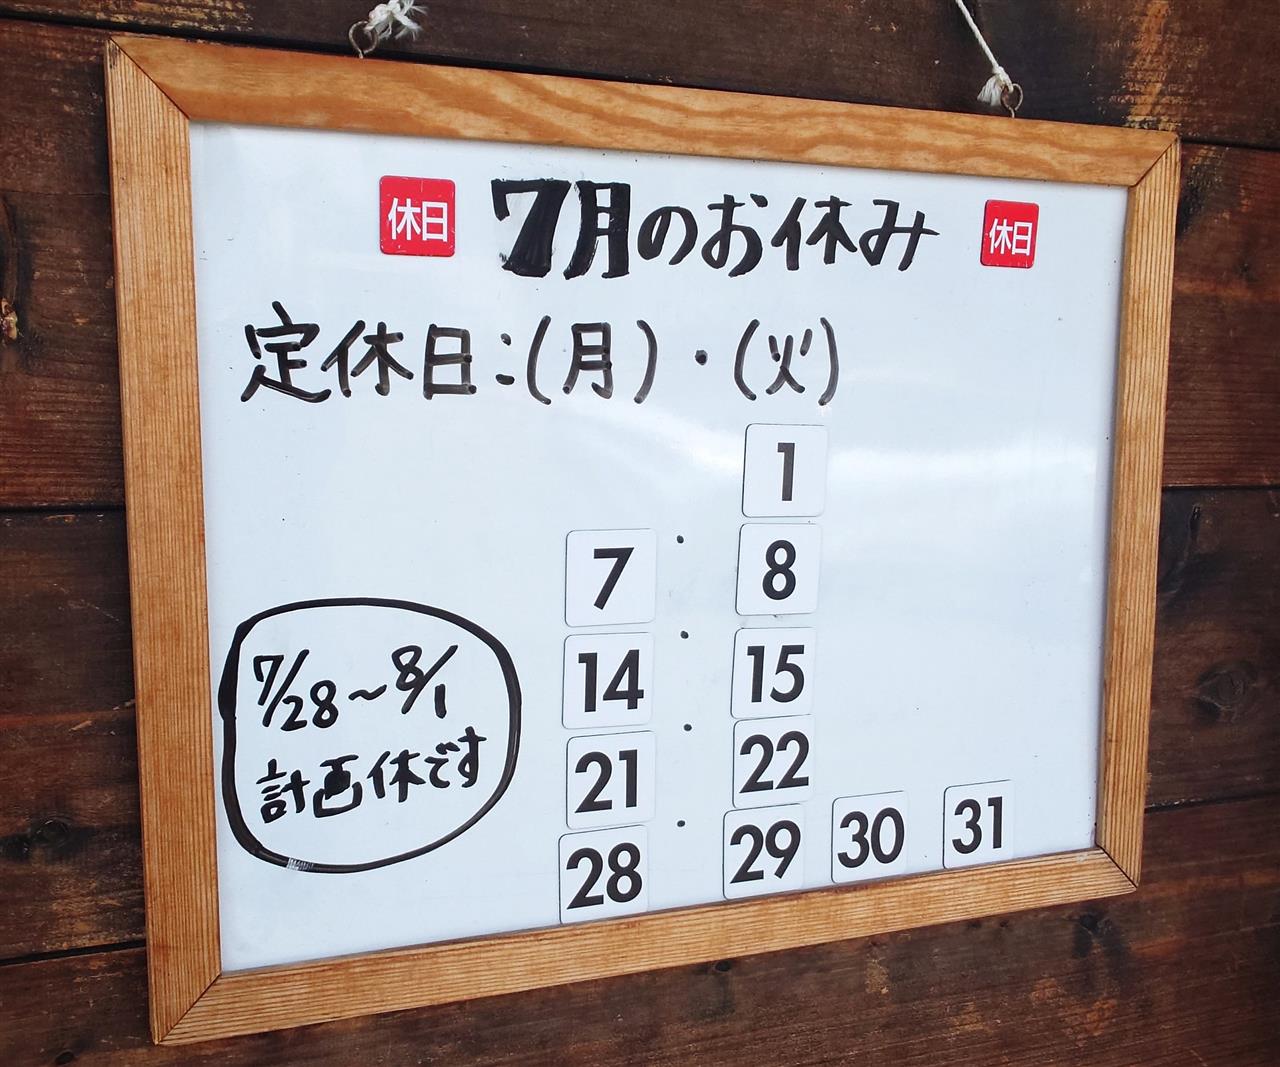 休日 7月のお休み 休日
定休日:(月)・(火)
1
7・8
14・15
21・22
28・29 30 31
7/28~8/1
計画休です